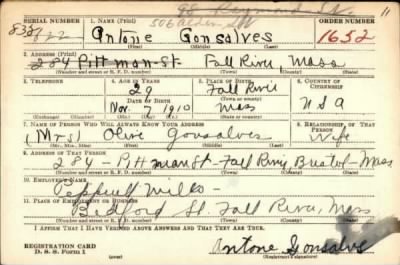 98
11
SERIAL NUMBER 1. NAME (Print) 506 Alden St ORDER NUMBER
822 Antone Gonsalves 1652
(First) (Middle) (Last)
2. ADDRESS (Print)
284 Pittman St Fall River Mass
(Number and street or R. F. D. number) (Town) (County) (State)
3. TELEPHONE 4. AGE IN YEARS 5. PLACE OF BIRTH 6. COUNTRY OF CITIZENSHIP
29 Fall River
DATE OF BIRTH (Town or county)
Nov. 7 1910 Mass USA
(Exchange) (Number) (Mo.) (Day) (Yr.) (State or country)
7. NAME OF PERSON WHO WILL ALWAYS KNOW YOUR ADDRESS 8. RELATIONSHIP OF THAT PERSON
(Mrs) Olive Gonsalves Wife
(Mr., Mrs., Miss) (First) (Middle) (Last)
9. ADDRESS OF THAT PERSON
284 - Pittman St - Fall River, Bristol - Mass
(Number and street or R. F. D. number) (Town) (County) (State)
10. EMPLOYER'S NAME
Pepperell Mills -
11. PLACE OF EMPLOYMENT OR BUSINESS
Bedford St. Fall River, Mass
(Number and street or R. F. D. number) (Town) (County) (State)
I AFFIRM THAT I HAVE VERIFIED ABOVE ANSWERS AND THAT THEY ARE TRUE.
REGISTRATION CARD
D. S. S. Form 1 Antone Gonsalves